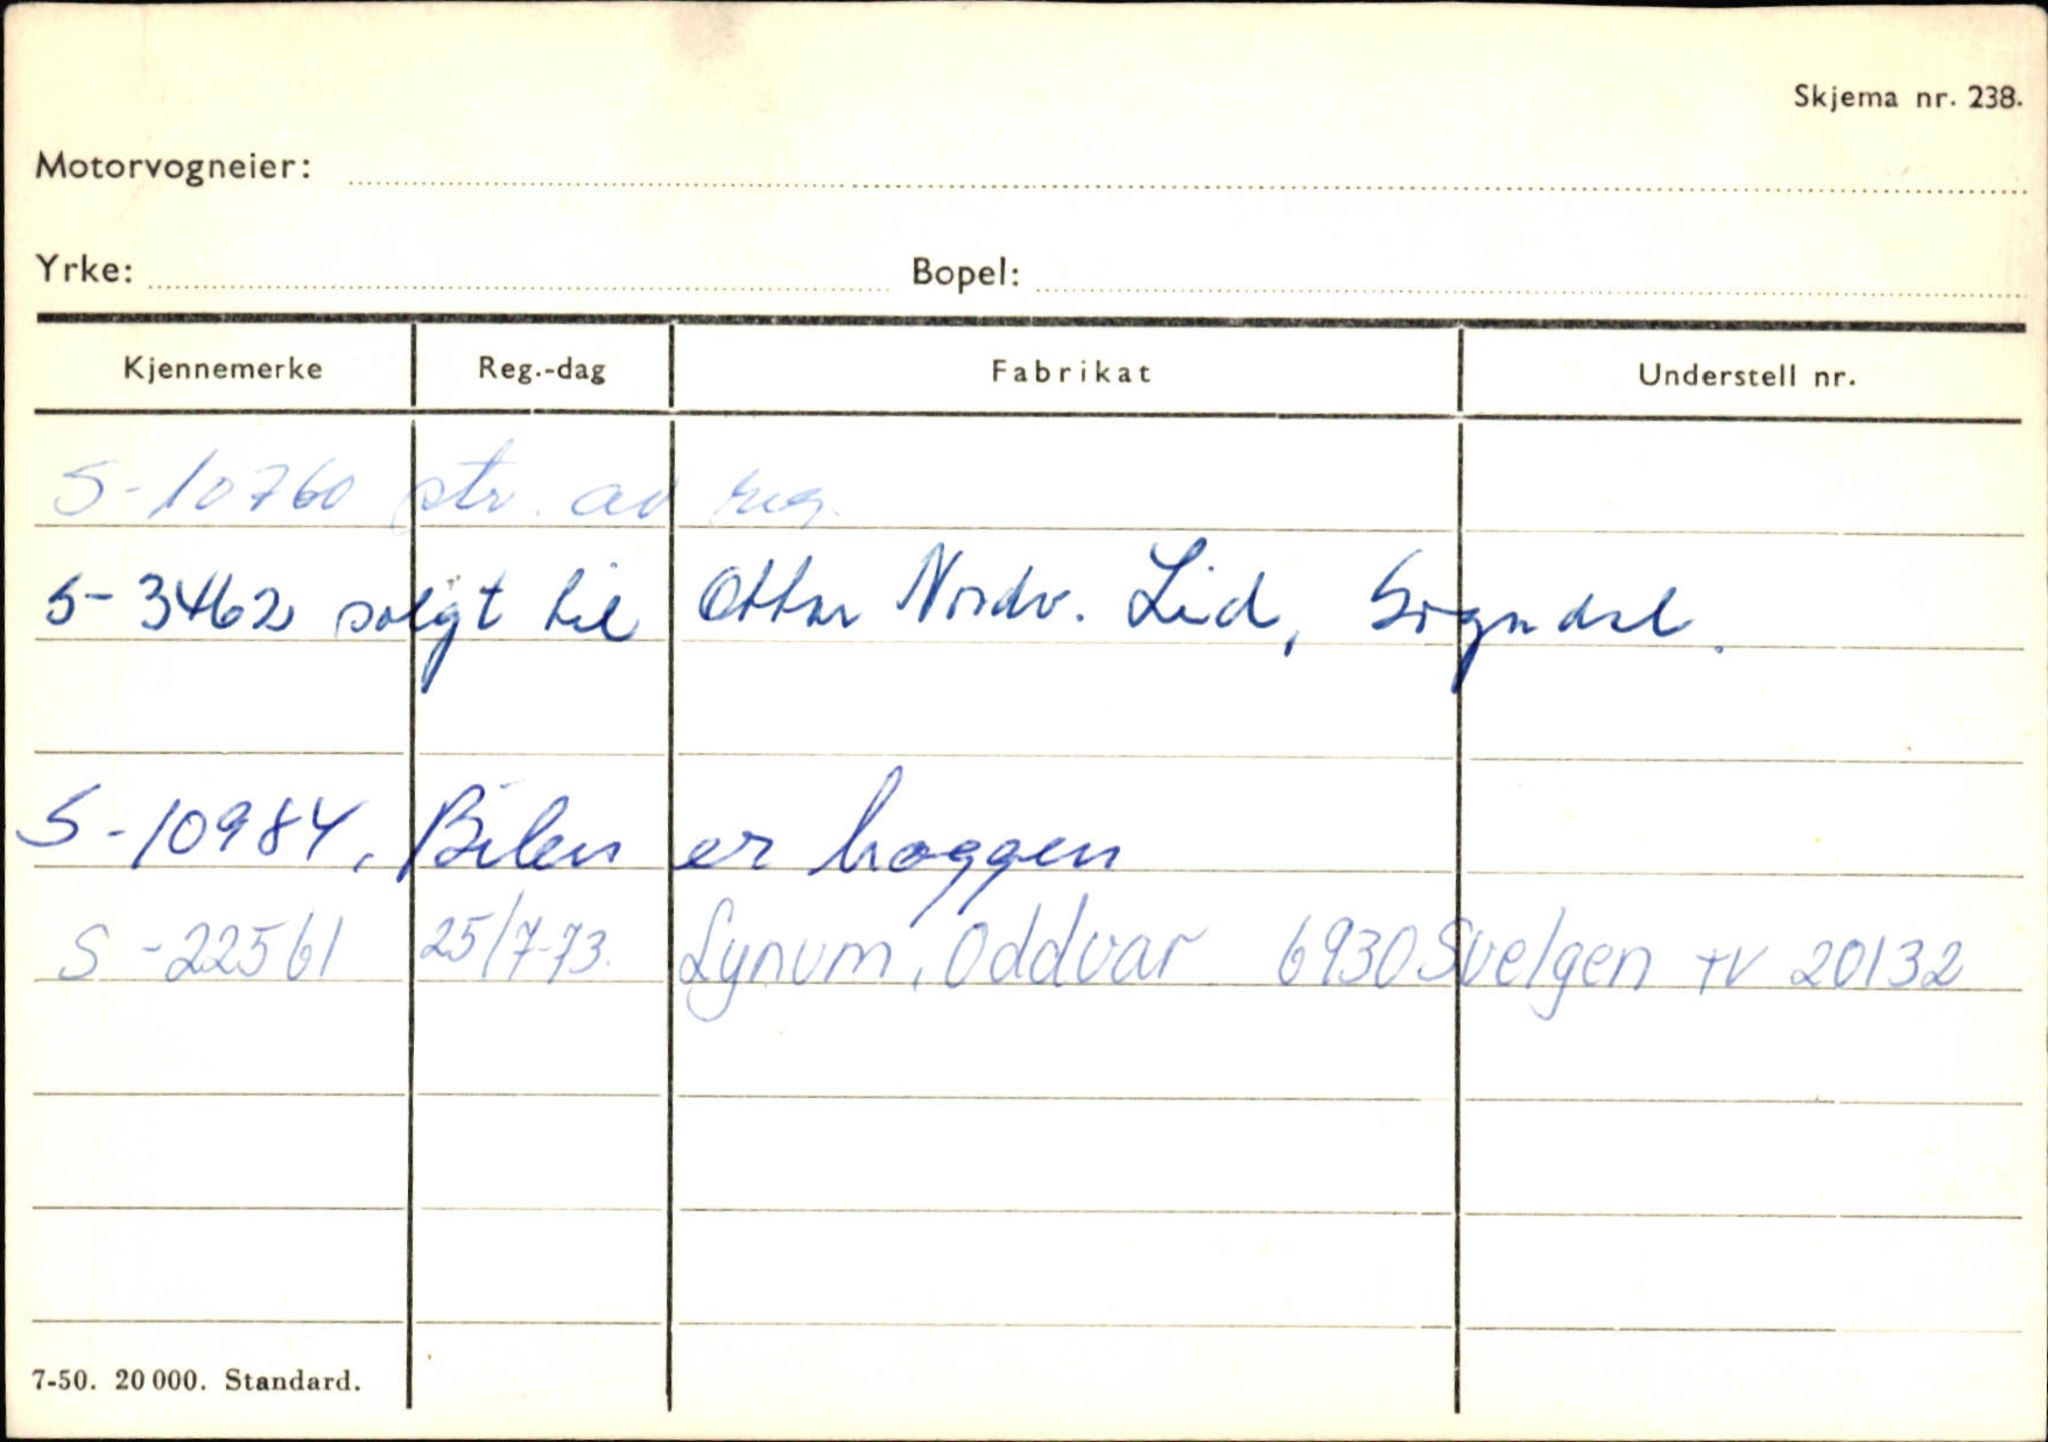 Skjema nr. 238.
Motorvogneier:
Yrke: Bopel:
Kjennemerke Reg.-dag Fabrikat Understell nr.
S-10760 str. av reg.
S-3462 solgt til Ottar Nordv. Lid, Sogndal.
S-10984, Bilen er hoggen
S-22561 25/7-73. Lynum, Oddvar 6930 Svelgen TV 20132
7-50. 20 000. Standard.